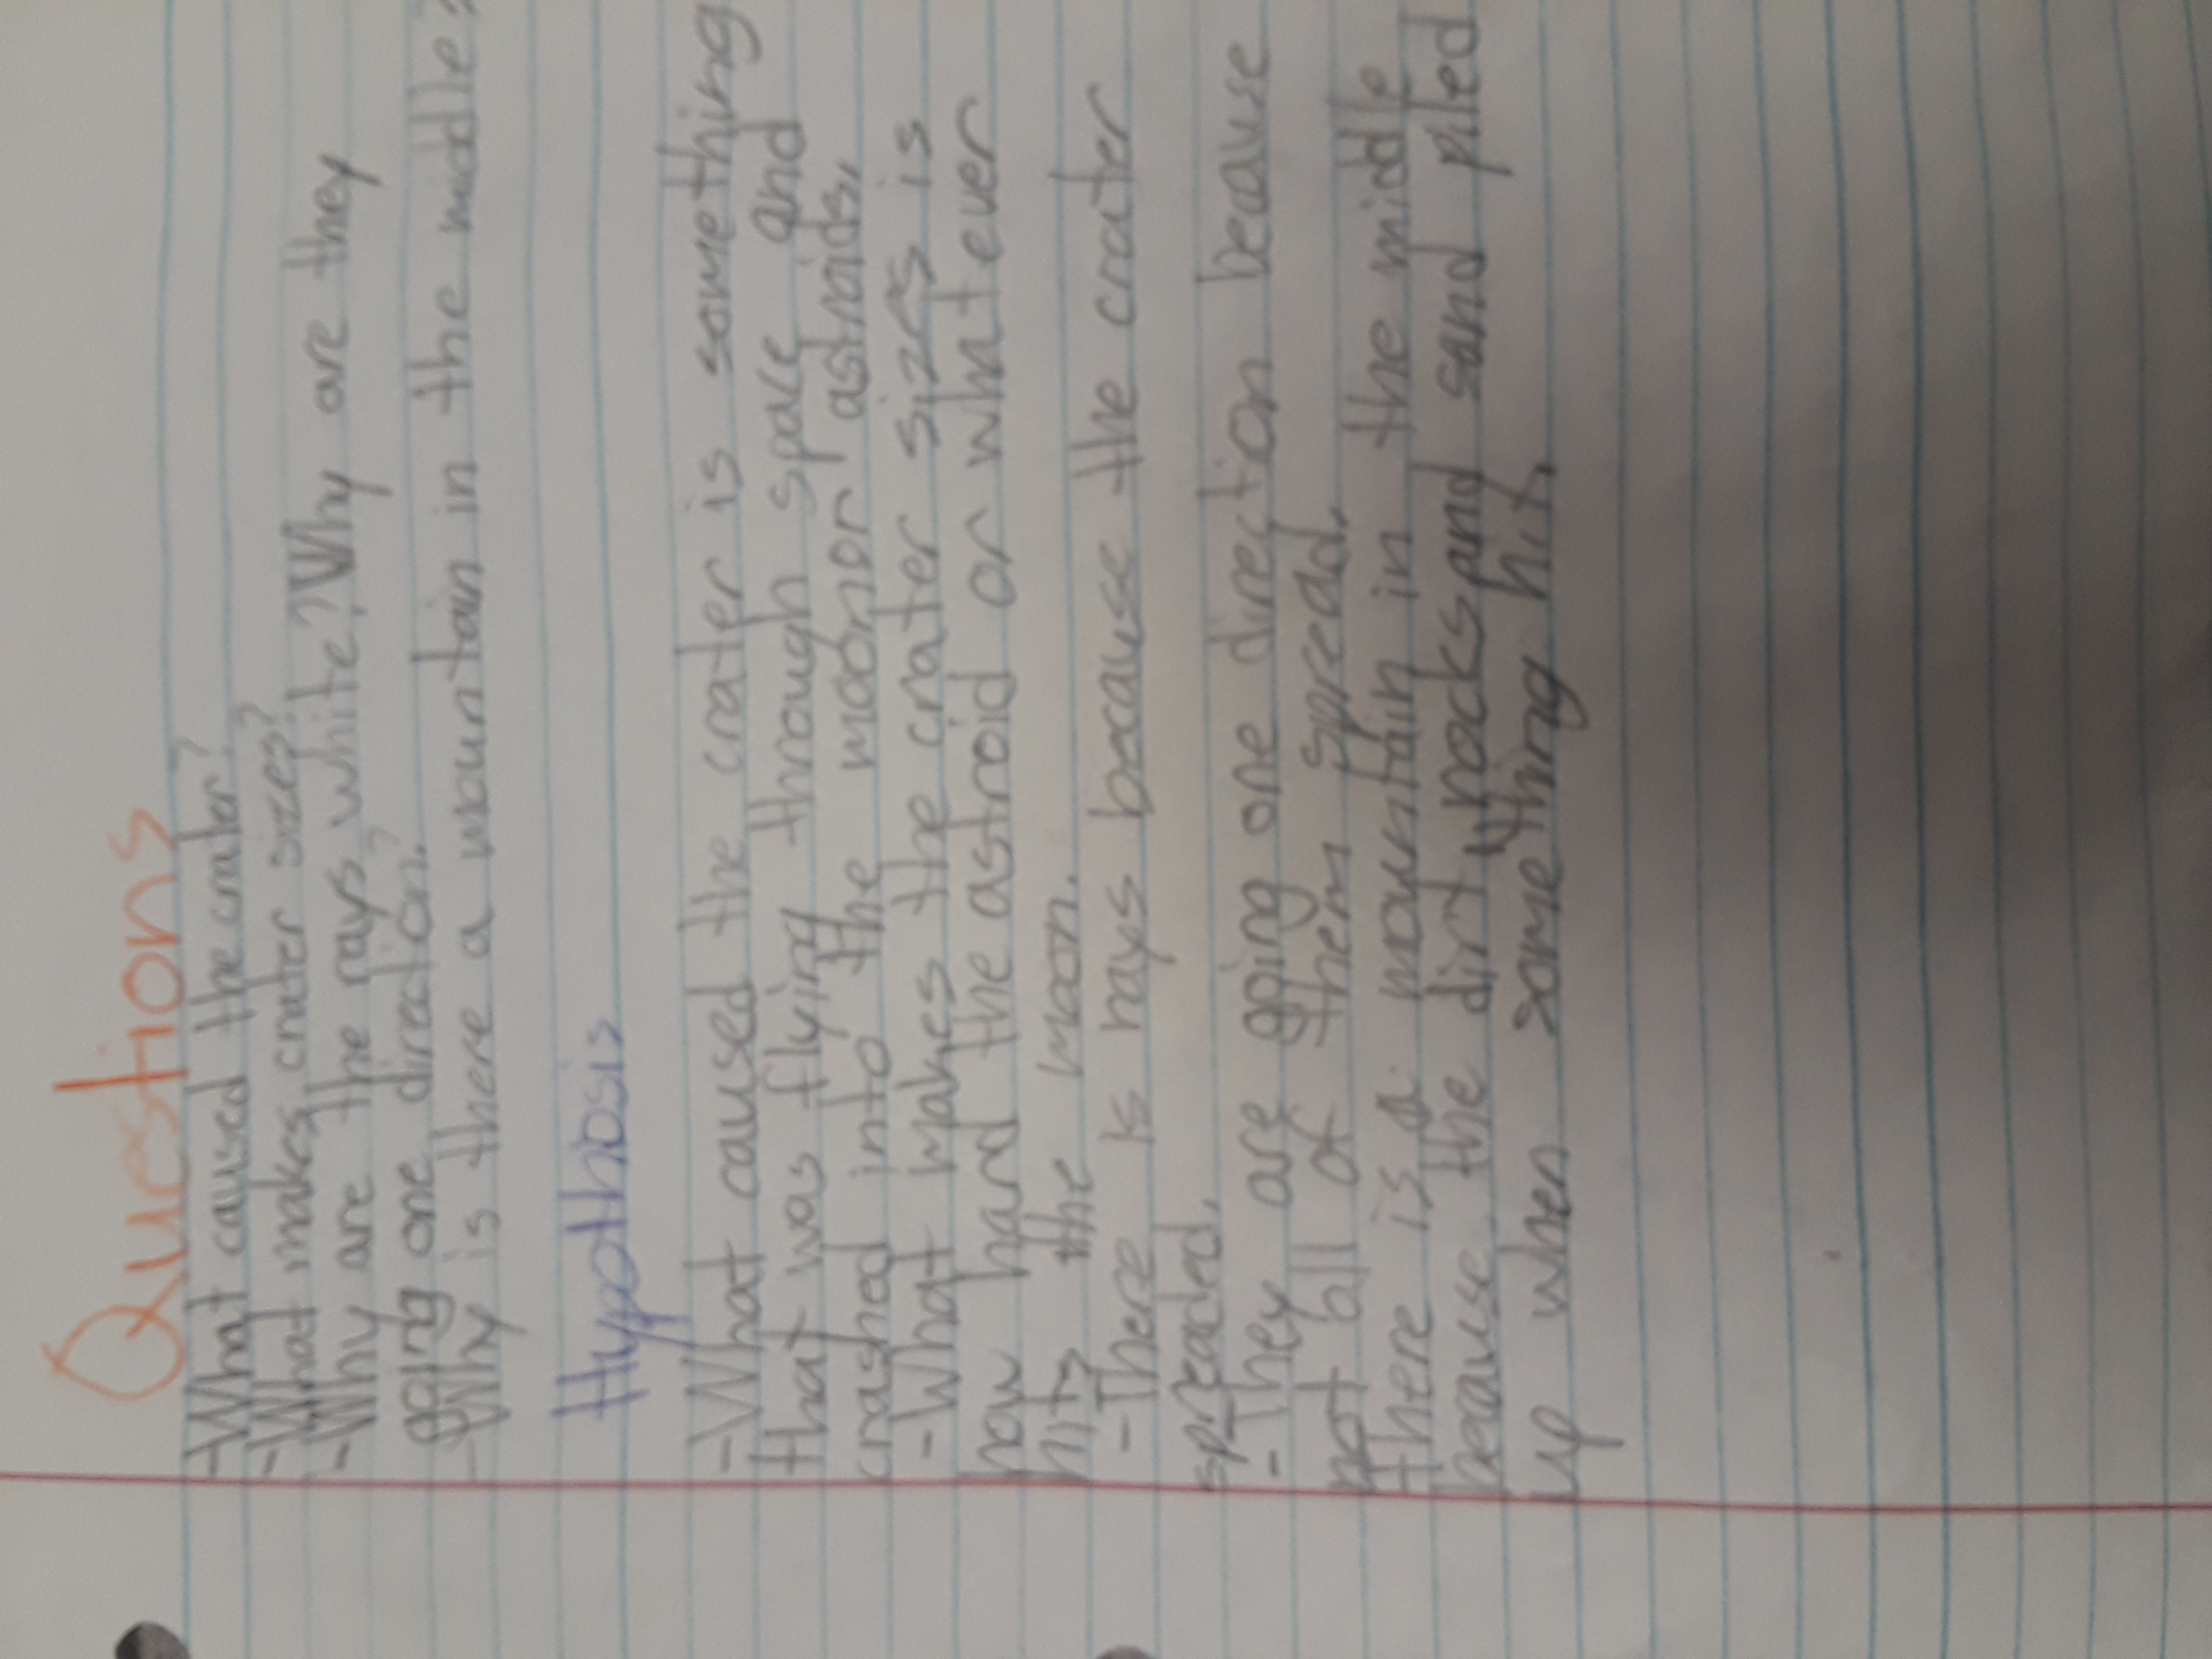 Questions
-What caused the crater?
-What makes crater sizes?
-Why are the rays white? Why are they
going one direction?
-Why is there a mountain in the middle?
Hypothosis
-What caused the crater is something
that was flying through space and
crashed into the moon or astroids.
-What makes the crater sizes is
how hard the astroid or what ever
hits the moon.
-There is rays because the crater
spreaded.
-They are going one direction because
not all of them spread.
there is a mountain in the middle
because the dirt, rocks and sand piled
up when something hit.